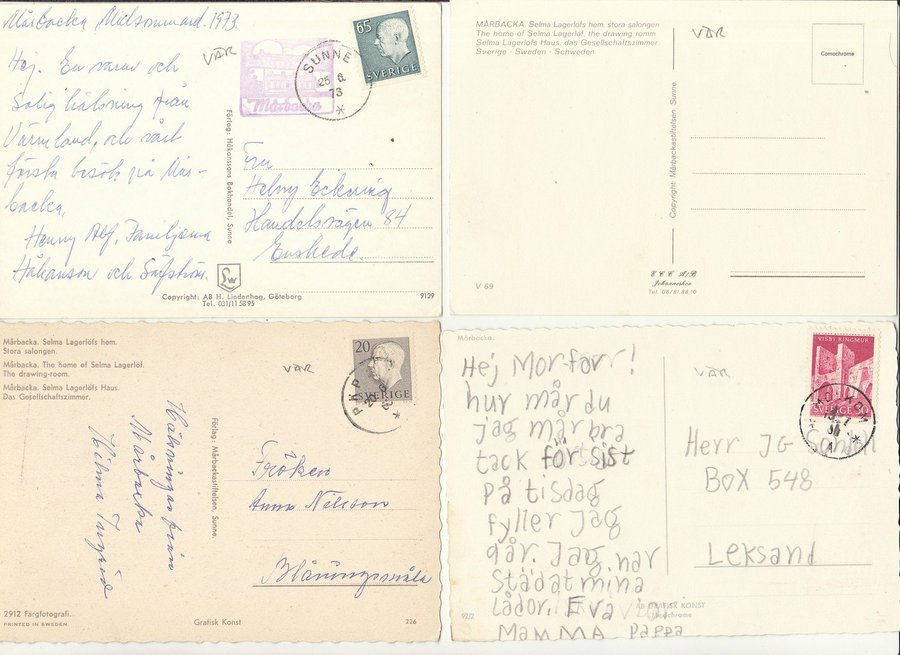 Mårbacka Midsommard. 1973
VÄR
Hej. En varm och
solig hälsning från
Värmland, och vårt
första besök på Mår-
backa.
Henny Alf, Familjerna
Håkanson och Säfström.
Förlag: Håkanssons Bokhandel, Sunne
Mårbacka
SUNNE
25 6
73
65
SVERIGE
Fru
Helny
Handelsvägen 84
Enskede.
Copyright: AB H. Lindenhag, Göteborg
Tel. 031/11 58 95
9129
MÅRBACKA. Selma Lagerlöfs hem, stora salongen
The home of Selma Lagerlöf, the drawing romm
Selma Lagerlöfs Haus. das Gesellschaftszimmer
Sverige - Sweden - Schweden
VÄR
Comochrome
Copyright: Mårbackastiftelsen Sunne
V 69
E C C A/B
Johanneshov
Tel. 08/81.88.10
Mårbacka. Selma Lagerlöfs hem.
Stora salongen.
Mårbacka. The home of Selma Lagerlöf.
The drawing-room.
Mårbacka. Selma Lagerlöfs Haus.
Das Gesellschaftszimmer.
VÄR
20
SVERIGE
Hälsningar från
Mårbacka
Ingrid
Förlag: Mårbackastiftelsen, Sunne.
Fröken
Anna Nilsson
2912 Färgfotografi.
PRINTED IN SWEDEN
Grafisk Konst
226
Mårbacka.
VÄR
VISBY RINGMUR
SVERIGE 30
Hej Morfarr!
hur mår du
jag mår bra
tack för sist
på tisdag
fyller jag
går. Jag har
städat mina
lådor. Eva
MAMMA Pappa
Herr JG
BOX 548
Leksand
92/2
AB GRAFISK KONST